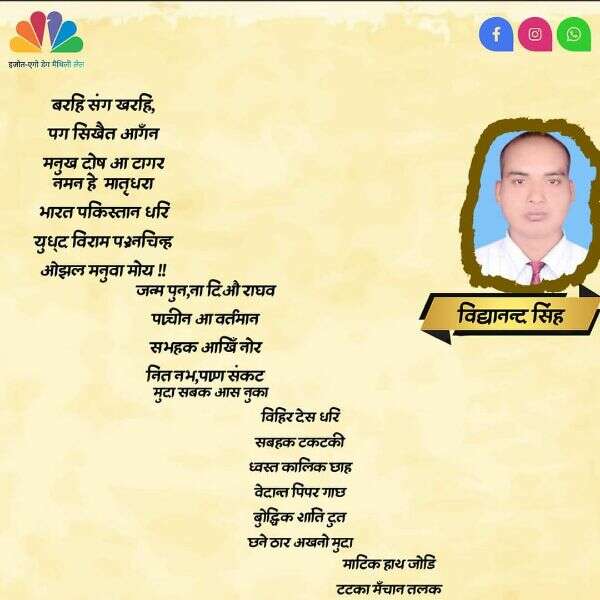 इजोत-एगो डेग मैथिली लेल
बरहि संग खरहि,
पग सिखैत आगँन
मनुख दोष आ टागर
नमन हे मातृधरा
भारत पकिस्तान धरि
युध्द विराम प्रश्नचिन्ह
ओझल मनुवा मोय !!
जन्म पुन,ना दिऔ राघव
पाचीन आ वर्तमान
सभहक आखिँ नोर
नित नभ,पाण संकट
मुदा सबक आस नुका
विहिर देस धरि
सबहक टकटकी
ध्वस्त कालिक छाह
वेदान्त पिपर गाछ
बुोद्धिक शाति दुत
छने ठार अखनो मुदा
माटिक हाथ जोडि
टटका मँचान तलक
विद्यानन्द सिंह